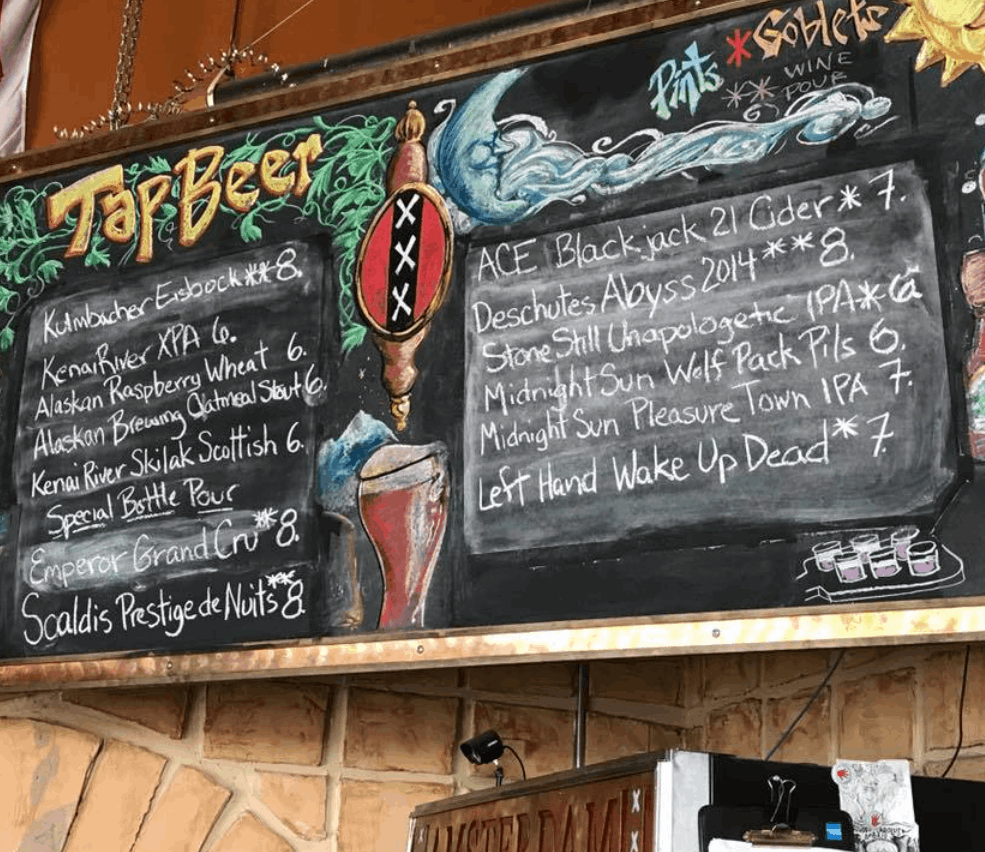 Tap Beer
Kulmbacher Eisbock**8.
Kenai River XPA 6.
Alaskan Raspberry Wheat 6.
Alaskan Brewing Oatmeal Stout 6.
Kenai River Skilak Scottish 6.
Special Bottle Pour
Emperor Grand Cru**8.
Scaldis Prestige de Nuits**8
XXX
Pints *Goblets
** WINE
POUR
ACE Blackjack 21 Cider* 7.
Deschutes Abyss 2014**8.
Stone Still Unapologetic IPA*6
Midnight Sun Wolf Pack Pils 6.
Midnight Sun Pleasure Town IPA 7.
Left Hand Wake Up Dead* 7.
AMSTERDAM